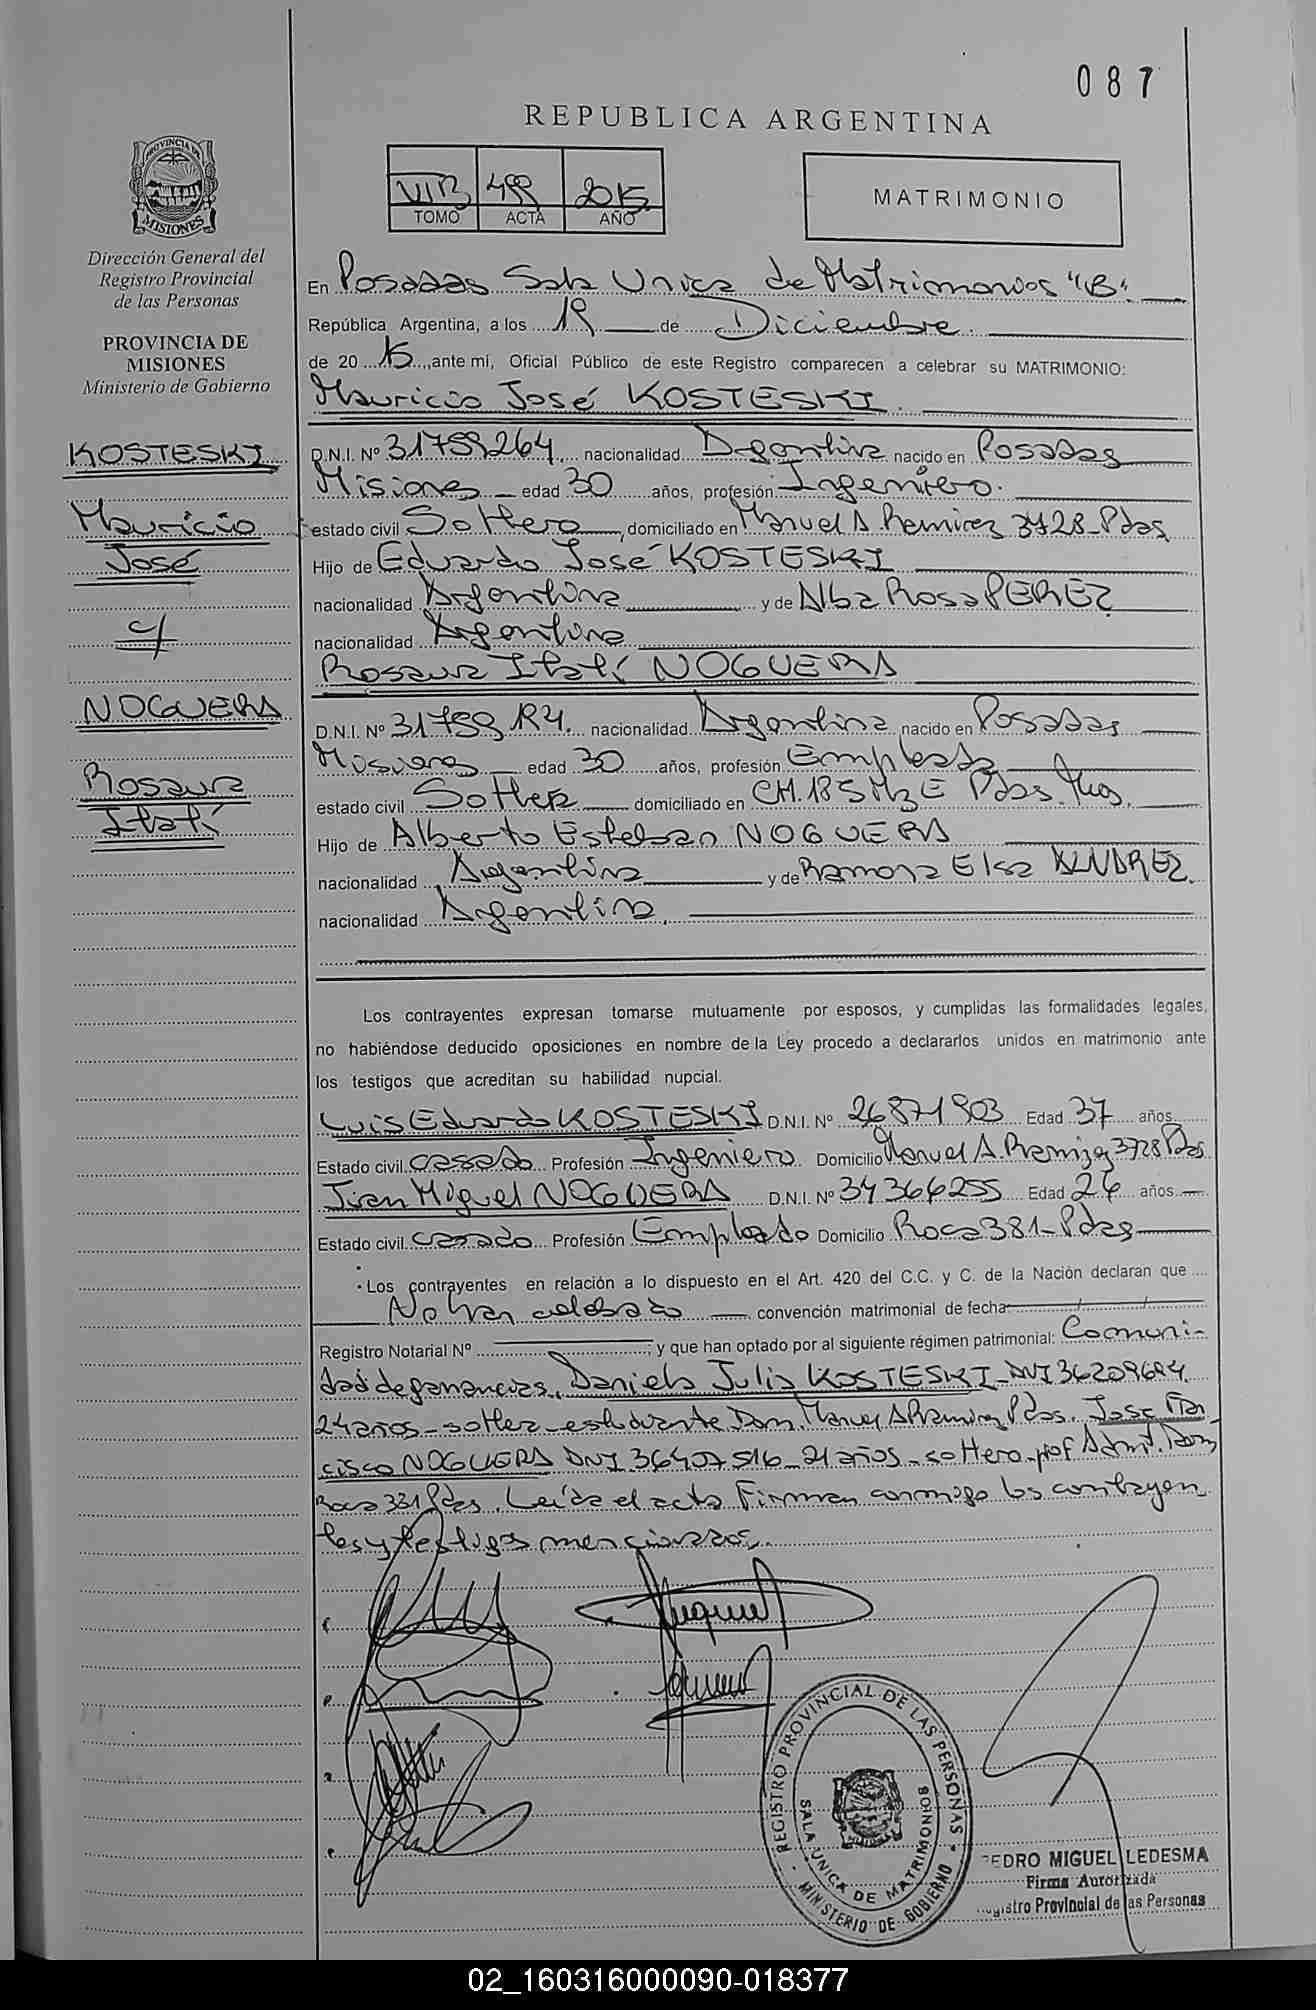 087
REPUBLICA ARGENTINA
VIIB 499 2015
TOMO ACTA AÑO
MATRIMONIO
PROVINCIA DE MISIONES
Dirección General del
Registro Provincial
de las Personas
PROVINCIA DE
MISIONES
Ministerio de Gobierno
KOSTESKI
Mauricio
José
c/
NOGUERA
Rosaura
Itatí
En Posadas Sala Unica de Matrimonios "B".
República Argentina, a los 19 de Diciembre.
de 20 15, ante mi, Oficial Público de este Registro comparecen a celebrar su MATRIMONIO:
Mauricio José KOSTESKI
D.N.I. Nº 31799264 nacionalidad Argentina nacido en Posadas
Misiones edad 30 años, profesión Ingeniero.
estado civil Soltero, domiciliado en Manuel A. Ramirez 3728 - Pdas
Hijo de Eduardo José KOSTESKI
nacionalidad Argentina y de Alba Rosa PEREZ
nacionalidad Argentina
Rosaura Itatí NOGUERA
D.N.I. Nº nacionalidad Argentina nacido en Posadas
Misiones edad 30 años, profesión Empleada
estado civil Soltera domiciliado en CH. 185 Mz E Pdas. Mnes.
Hijo de Alberto Esteban NOGUERA
nacionalidad Argentina y de Ramona Elsa ALVAREZ.
nacionalidad Argentina.
Los contrayentes expresan tomarse mutuamente por esposos, y cumplidas las formalidades legales,
no habiéndose deducido oposiciones en nombre de la Ley procedo a declararlos unidos en matrimonio ante
los testigos que acreditan su habilidad nupcial.
Luis Eduardo KOSTESKI D.N.I. Nº 26871903 Edad 37 años
Estado civil casado Profesión Ingeniero Domicilio Manuel A. Ramirez 3728 Pdas
Juan Miguel NOGUERA D.N.I. Nº 34366255 Edad 26 años
Estado civil casado Profesión Empleado Domicilio Roca 381 - Pdas
Los contrayentes en relación a lo dispuesto en el Art. 420 del C.C. y C. de la Nación declaran que
No han celebrado convención matrimonial de fecha
Registro Notarial Nº ; y que han optado por al siguiente régimen patrimonial: Comuni-
dad de ganancias, Daniela Julia KOSTESKI - DNI 36209694
24 años - soltera - estudiante Dom. Manuel A Ramirez Pdas. Jose Fran
cisco NOGUERA DNI 36407516 - 21 años - soltero - prof Admt. Dom
Roca 381 Pdas. Leída el acta Firman conmigo los contrayen
tes y testigos mencionados.
REGISTRO PROVINCIAL DE LAS PERSONAS
SALA UNICA DE MATRIMONIOS
MINISTERIO DE GOBIERNO
PEDRO MIGUEL LEDESMA
Firma Autorizada
Registro Provincial de las Personas
02_160316000090-018377